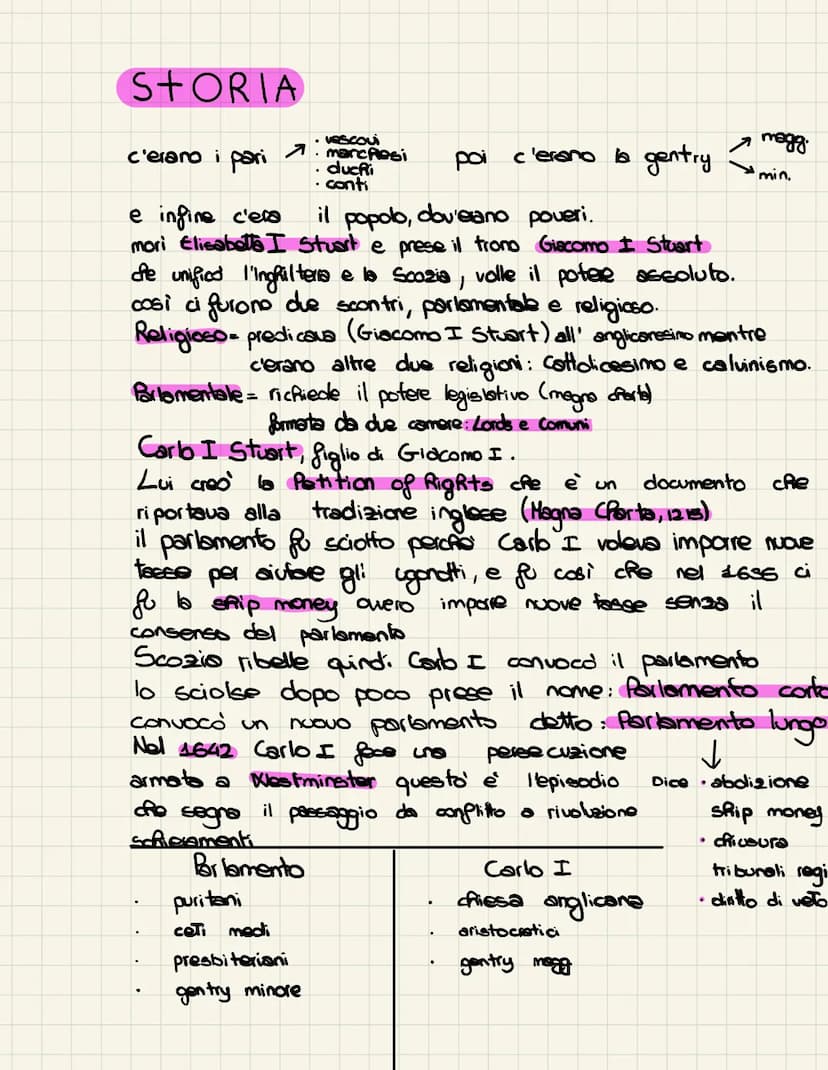 STORIA
c'erano i pari ↗ · vescovi
· marchesi
· duchi
· conti
poi c'erano la gentry ↗ magg.
↘ min.
e infine c'era il popolo, dov'erano poveri.
morì Elisabetta I Stuart e prese il trono Giacomo I Stuart
che unificò l'Inghilterra e la Scozia, volle il potere assoluto.
così ci furono due scontri, parlamentale e religioso.
Religioso= predicava (Giacomo I Stuart) all' anglicanesimo mentre
c'erano altre due religioni: Cattolicesimo e calvinismo.
Parlamentale= richiede il potere legislativo (magna charta)
formata da due camere: Lords e Comuni
Carlo I Stuart, figlio di Giacomo I.
Lui creò la Petition of Rights che è un documento che
riportava alla tradizione inglese (Magna Charta, 1215)
il parlamento fu sciolto perchè Carlo I voleva imporre nuove
tasse per aiutare gli ugonotti, e fu così che nel 1636 ci
fu la ship money ovvero imporre nuove tasse senza il
consenso del parlamento
Scozia ribelle quindi Carlo I convocò il parlamento
lo sciolse dopo poco prese il nome: Parlamento corto
convocò un nuovo parlamento detto: Parlamento lungo
Nel 1642 Carlo I fece una persecuzione
armata a Westminster questo è l'episodio
che segna il passaggio da conflitto a rivoluzione
↓
Dice · abolizione
ship money
· chiusura
tribunali regi
· diritto di veto
schieramenti
Parlamento
· puritani
· ceti medi
· presbiteriani
· gentry minore
Carlo I
· chiesa anglicana
· aristocratici
· gentry magg